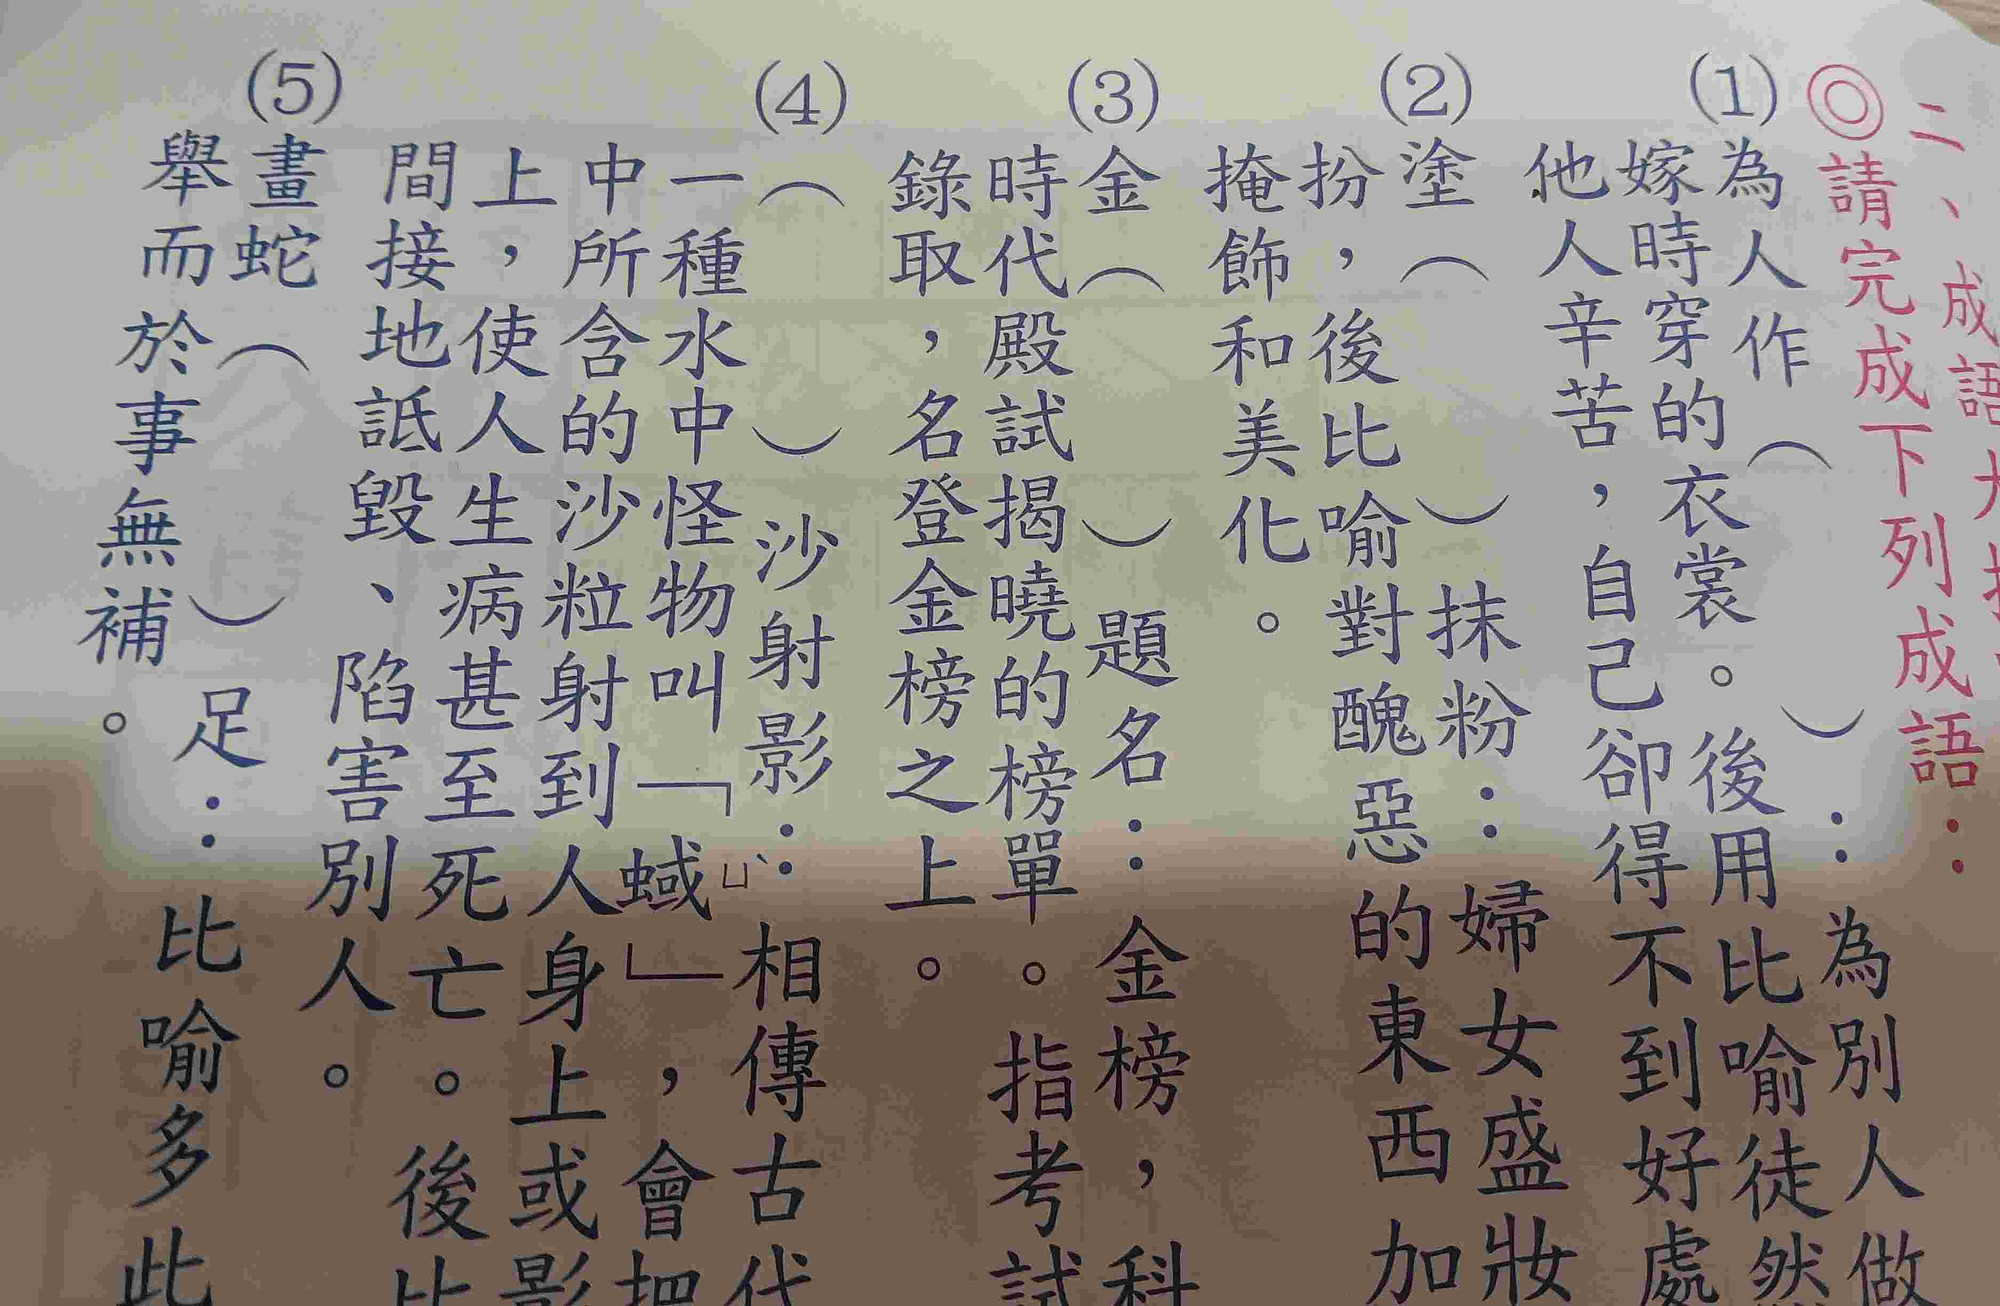 二、成語大
◎請完成下列成語：
(1)為人作（　）：為別人做
嫁時穿的衣裳。後用比喻徒然
他人辛苦，自己卻得不到好處
(2)塗（　）抹粉：婦女盛妝
扮，後比喻對醜惡的東西加
掩飾和美化。
(3)金（　）題名：金榜，科
時代殿試揭曉的榜單。指考試
錄取，名登金榜之上。
(4)（　）沙射影：相傳古代
一種水中怪物叫「蜮ㄩˋ」，會把
中所含的沙粒射到人身上或影
上，使人生病甚至死亡。後比
間接地詆毀、陷害別人。
(5)畫蛇（　）足：比喻多此
舉而於事無補。